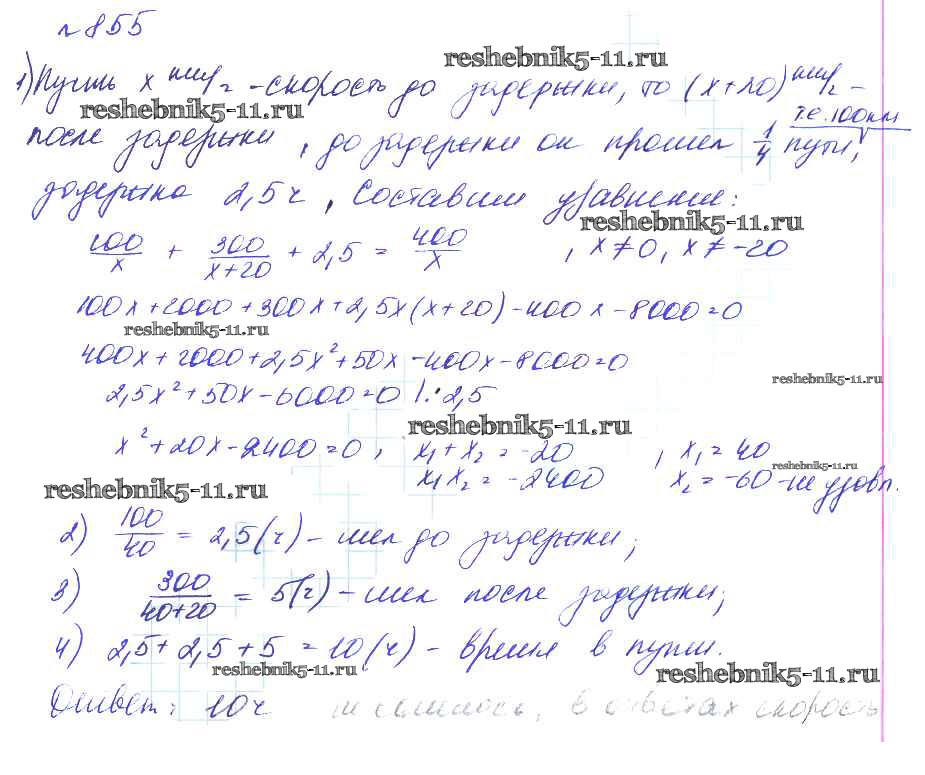 № 855
reshebnik5-11.ru
1) Пусть x км/ч - скорость до задержки, то (x+20) км/ч -
reshebnik5-11.ru
т.е. 100 км
после задержки, до задержки он прошел 1/4 пути,
задержка 2,5 ч, Составим уравнение:
reshebnik5-11.ru
100/x + 300/(x+20) + 2,5 = 400/x , x ≠ 0, x ≠ -20
100x + 2000 + 300x + 2,5x(x+20) - 400x - 8000 = 0
reshebnik5-11.ru
400x + 2000 + 2,5x² + 50x - 400x - 8000 = 0
reshebnik5-11.ru
2,5x² + 50x - 6000 = 0 |: 2,5
reshebnik5-11.ru
x² + 20x - 2400 = 0, x₁ + x₂ = -20 , x₁ = 40
reshebnik5-11.ru
x₁x₂ = -2400 x₂ = -60 - не удовл.
reshebnik5-11.ru
2) 100/40 = 2,5 (ч) - шел до задержки;
3) 300/(40+20) = 5 (ч) - шел после задержки;
4) 2,5 + 2,5 + 5 = 10 (ч) - время в пути.
reshebnik5-11.ru
reshebnik5-11.ru
Ответ: 10 ч не сошлось, в ответах скорость